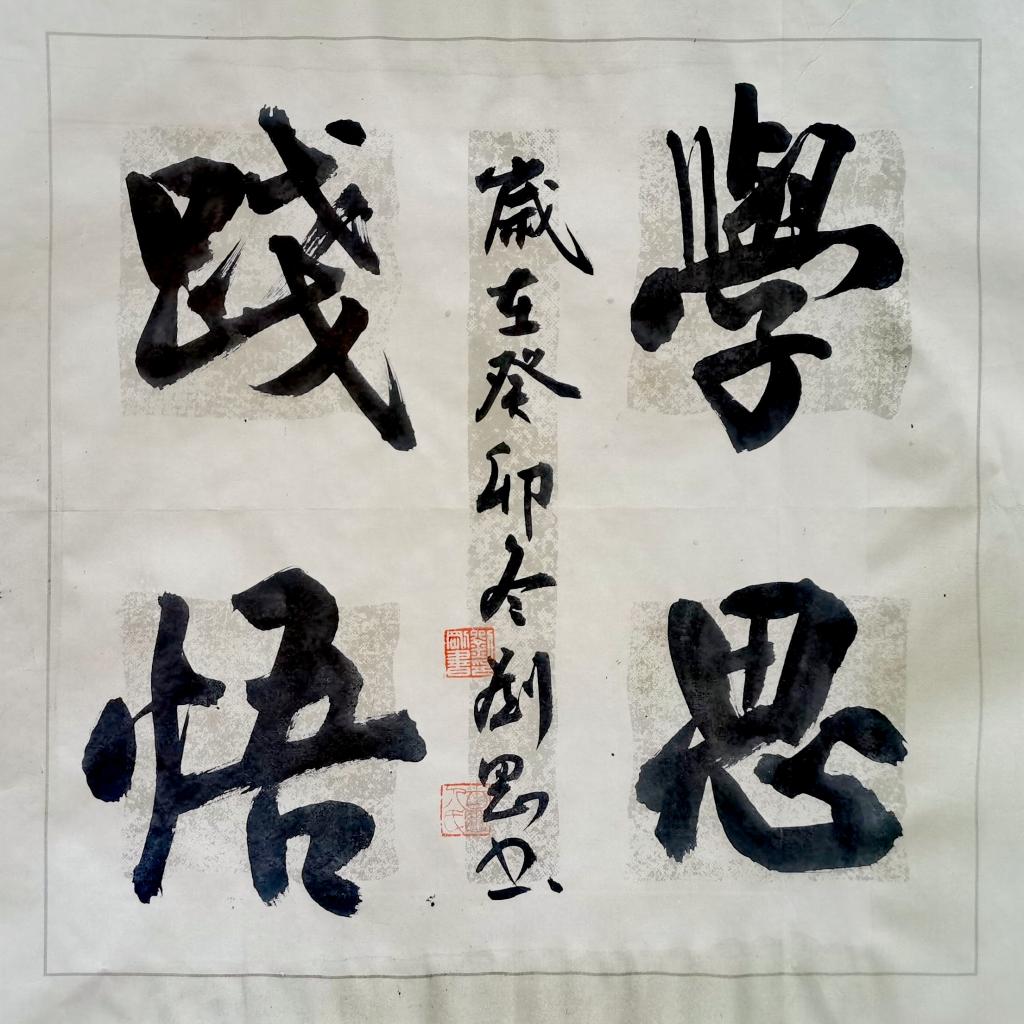 學思
踐悟
歲在癸卯冬劉书